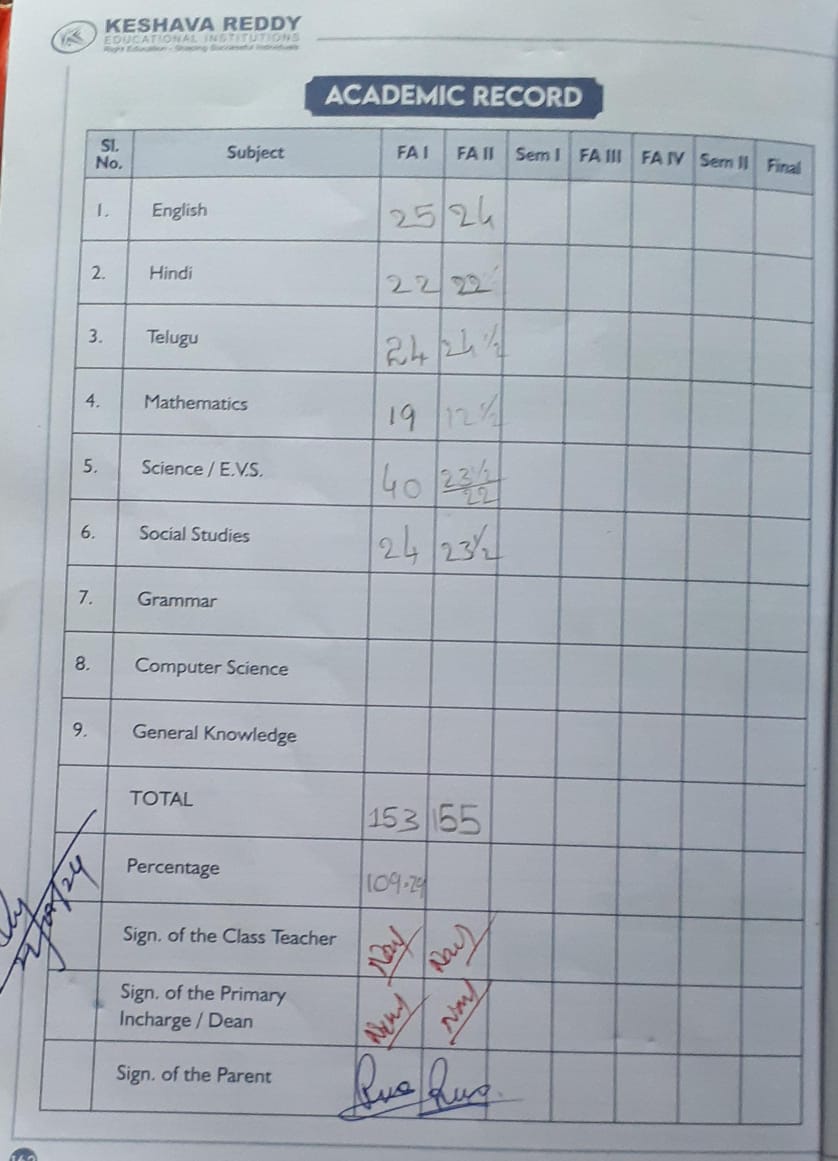 KESHAVA REDDY
EDUCATIONAL INSTITUTIONS
Right Education - Shaping Successful Individuals
ACADEMIC RECORD
Sl. No. Subject FA I FA II Sem I FA III FA IV Sem II Final
1. English 25 24
2. Hindi 22 22
3. Telugu 24 24 ½
4. Mathematics 19 12 ½
5. Science / E.V.S. 40 23½ 22
6. Social Studies 24 23½
7. Grammar
8. Computer Science
9. General Knowledge
TOTAL 153 155
Percentage 109.29
Sign. of the Class Teacher
Sign. of the Primary
Incharge / Dean
Sign. of the Parent